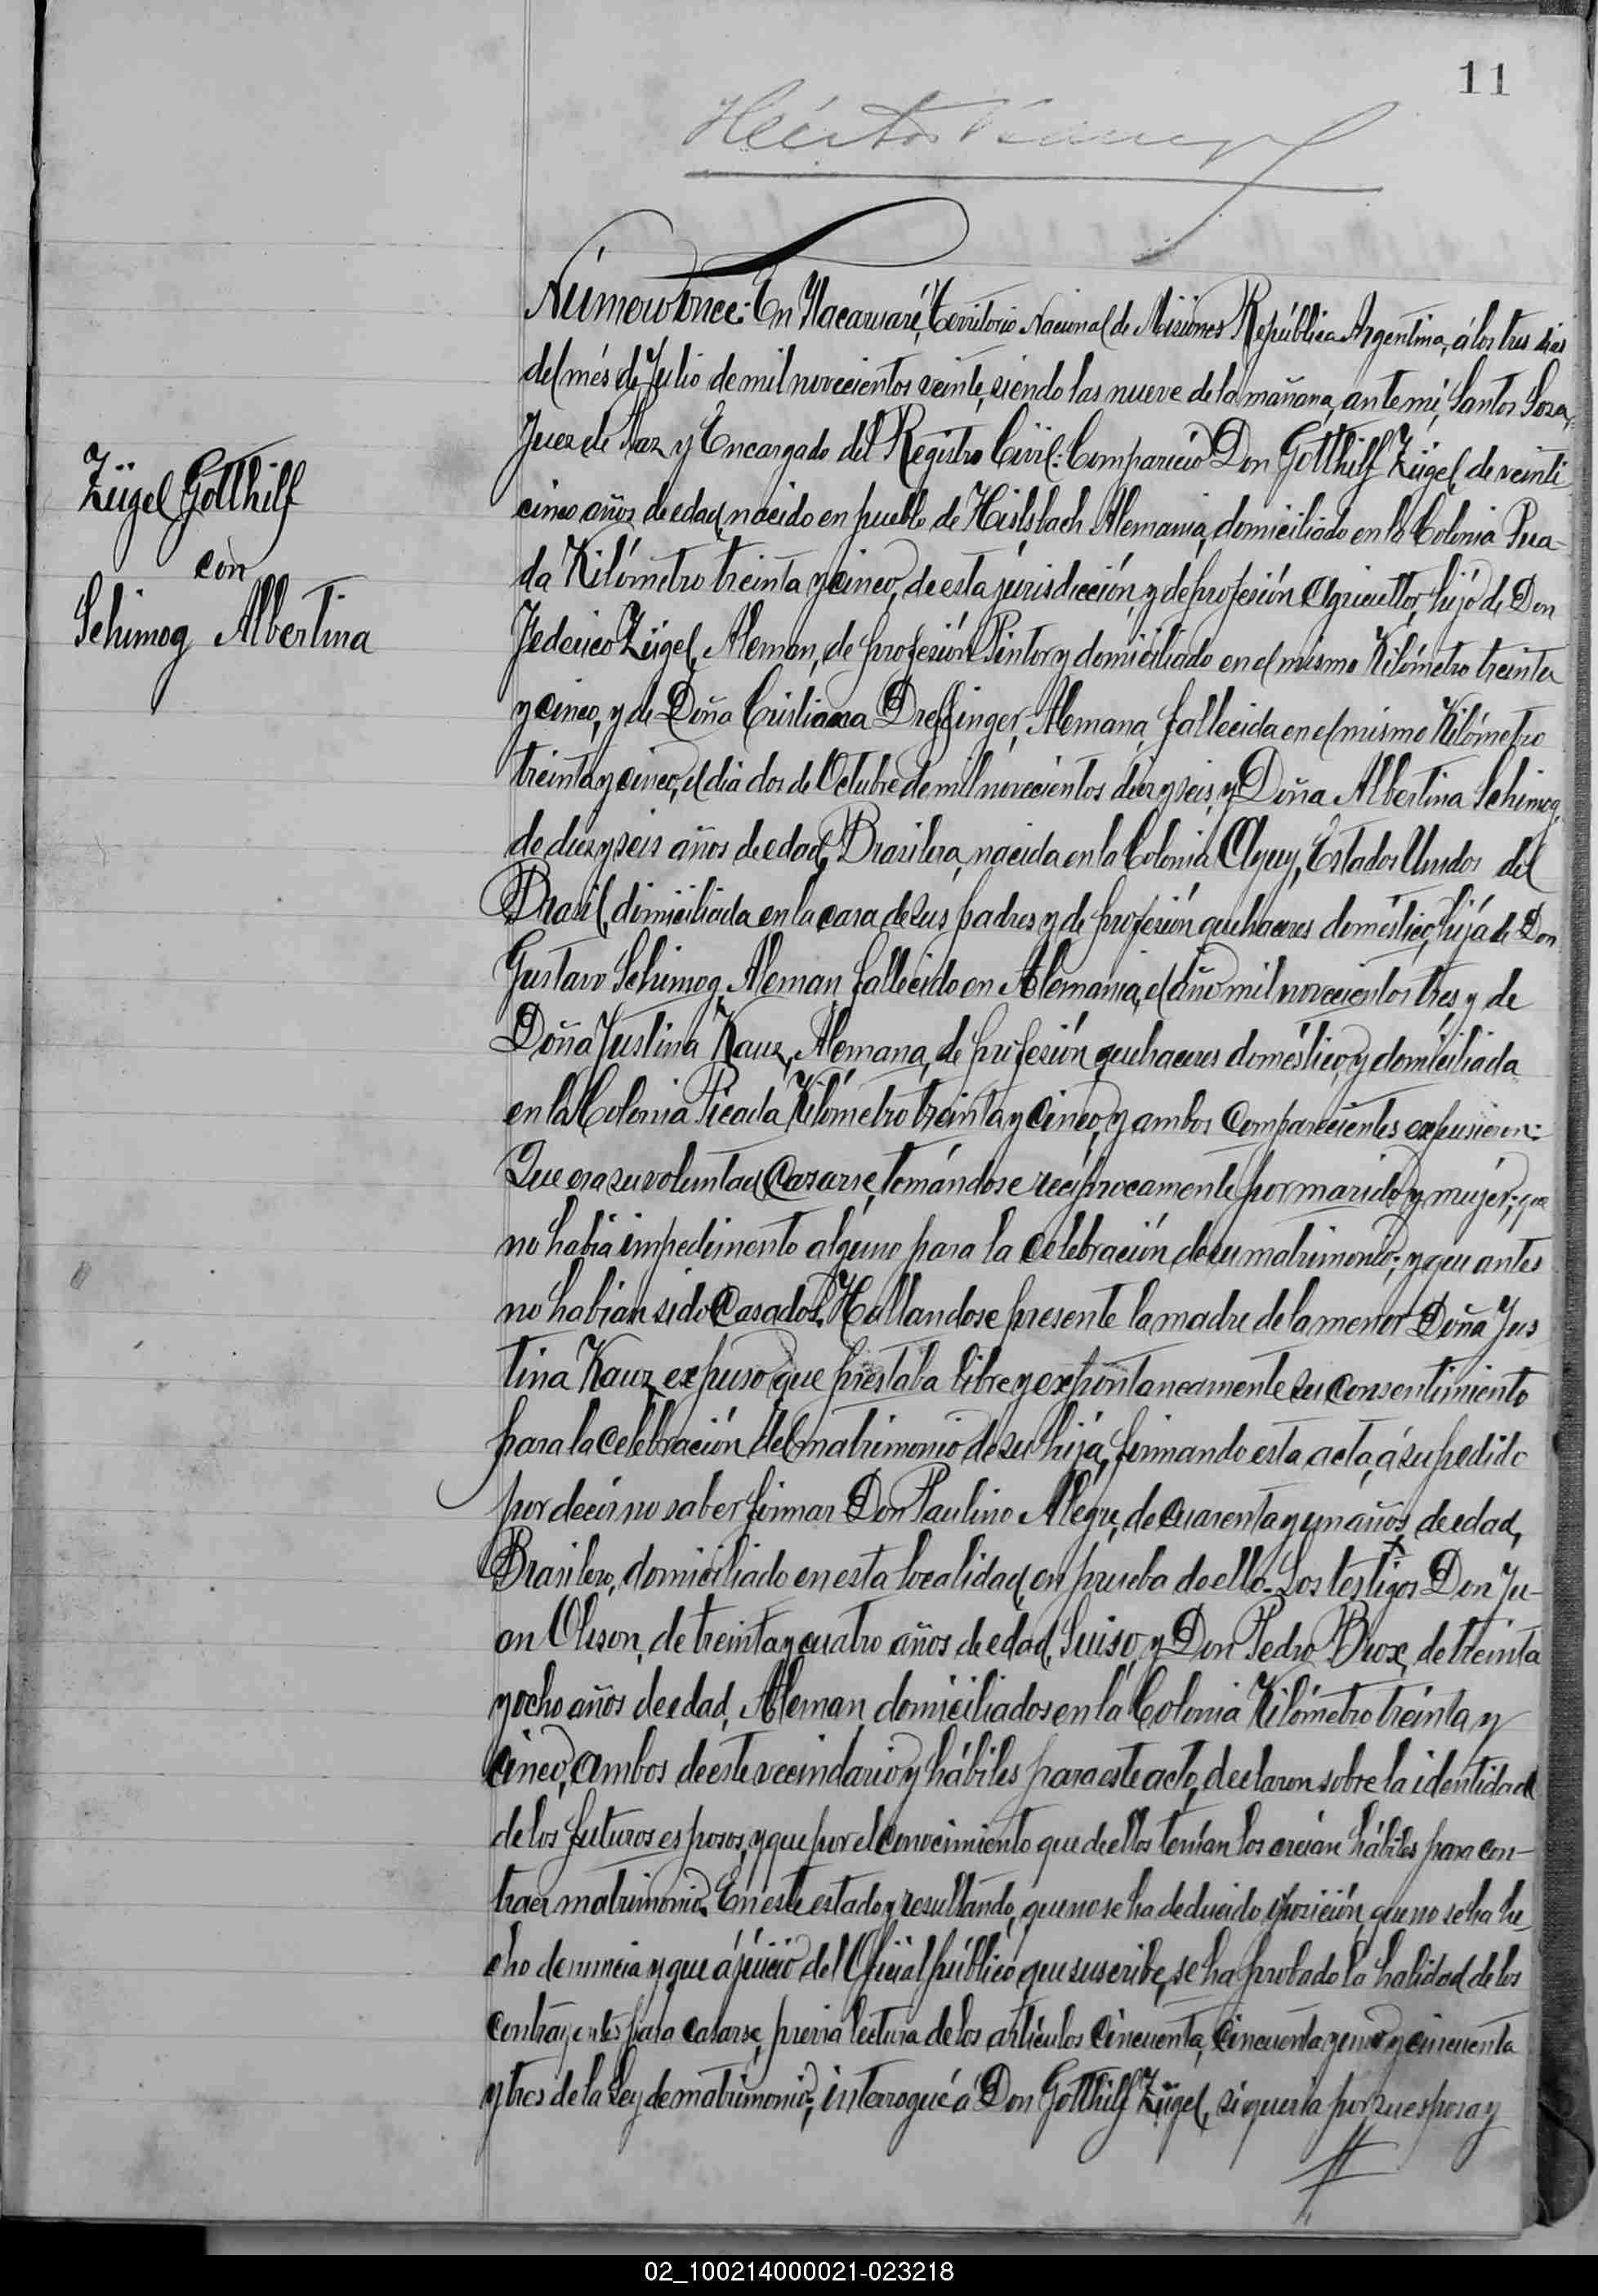 11
Número Once: En Yacaruaré, Territorio Nacional de Misiones República Argentina, á los tres dias
del més de Julio de mil novecientos veinte, siendo las nueve de la mañana, ante mi, Santos Sosa,
Juez de Paz y Encargado del Registro Civil: Compareció Don Gotthilf Zügel, de veinti-
cinco años de edad, nacido en pueblo de Hislsbach Alemania, domiciliado en la Colonia Pica-
da Kilómetro treinta y cinco, de esta jurisdicción, y de profesión Agricultor, hijo de Don
Federico Zügel, Aleman, de profesión Pintor y domiciliado en el mismo Kilómetro treinta
y cinco, y de Doña Cristiana Dreffinger, Alemana, fallecida en el mismo Kilómetro
treinta y cinco, el dia dos de Octubre de mil novecientos diez y seis, y Doña Albertina Schimog,
Zügel Gotthilf
con
Schimog Albertina
de diez y seis años de edad, Brasilera, nacida en la Colonia, Estados Unidos del
Brasil, domiciliada en la casa de sus padres y de profesión quehaceres doméstico, hija de Don
Gustavo Schimog, Aleman, fallecido en Alemania, el año mil novecientos tres, y de
Doña Justina Kauz, Alemana, de profesión quehaceres doméstico, y domiciliada
en la Colonia Picada Kilómetro treinta y cinco, y ambos Comparecientes expusieron:
Que era su voluntad Casarse, tomándose recíprocamente por marido y mujér; que
no habia impedimento alguno para la celebración de su matrimonio; y que antes
no habian sido Casados. Hallandose presente la madre de la menor Doña Jus
tina Kauz, expuso que prestaba libre y expontaneamente su consentimiento
para la celebración del matrimonio de su hija, firmando esta acta, á su pedido
por decir no saber firmar Don Paulino Alegre, de cuarenta y un años de edad,
Brasilero, domiciliado en esta localidad, en prueba de ello. Los testigos Don Ju-
an Olison, de treinta y cuatro años de edad, Suiso, y Don Pedro Brox, de treinta
y ocho años de edad, Aleman, domiciliados en la Colonia Kilómetro treinta y
cinco, ambos de este vecindario y hábiles para este acto, declaron sobre la identidad
de los futuros esposos, y que por el conocimiento que de ellos tenían los creían hábiles para con-
traer matrimonio. En este estado y resultando, que no se ha deducido oposición, que no se ha he-
cho denuncia y que á juicio del Oficial público que suscribe, se ha probado la halidad de los
contrayentes para casarse, previa lectura de los artículos Cincuenta, Cincuenta y uno y cincuenta
y tres de la Ley de matrimonio; interrogué á Don Gotthilf Zügel, si queria por su esposa y
02_100214000021-023218